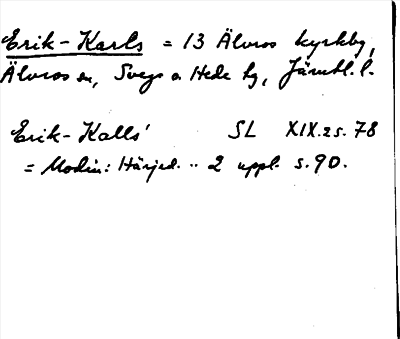 Erik-Karls = 13 Älvros kyrkby,
Älvros sn, Svegs o Hede tg, Jämtl. l.
Erik-Kalls' SL XIX.2 s. 78
= Modin: Härjed. .. 2 uppl. s. 90.